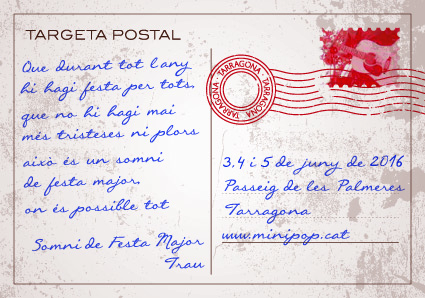 TARGETA POSTAL
Que durant tot l'any
hi hagi festa per tots,
que no hi hagi mai
més tristeses ni plors
això és un somni
de festa major,
on és possible tot
Somni de Festa Major
Trau
TARRAGONA · TARRAGONA · TARRAGONA
3, 4 i 5 de juny de 2016
Passeig de les Palmeres
Tarragona
www.minipop.cat